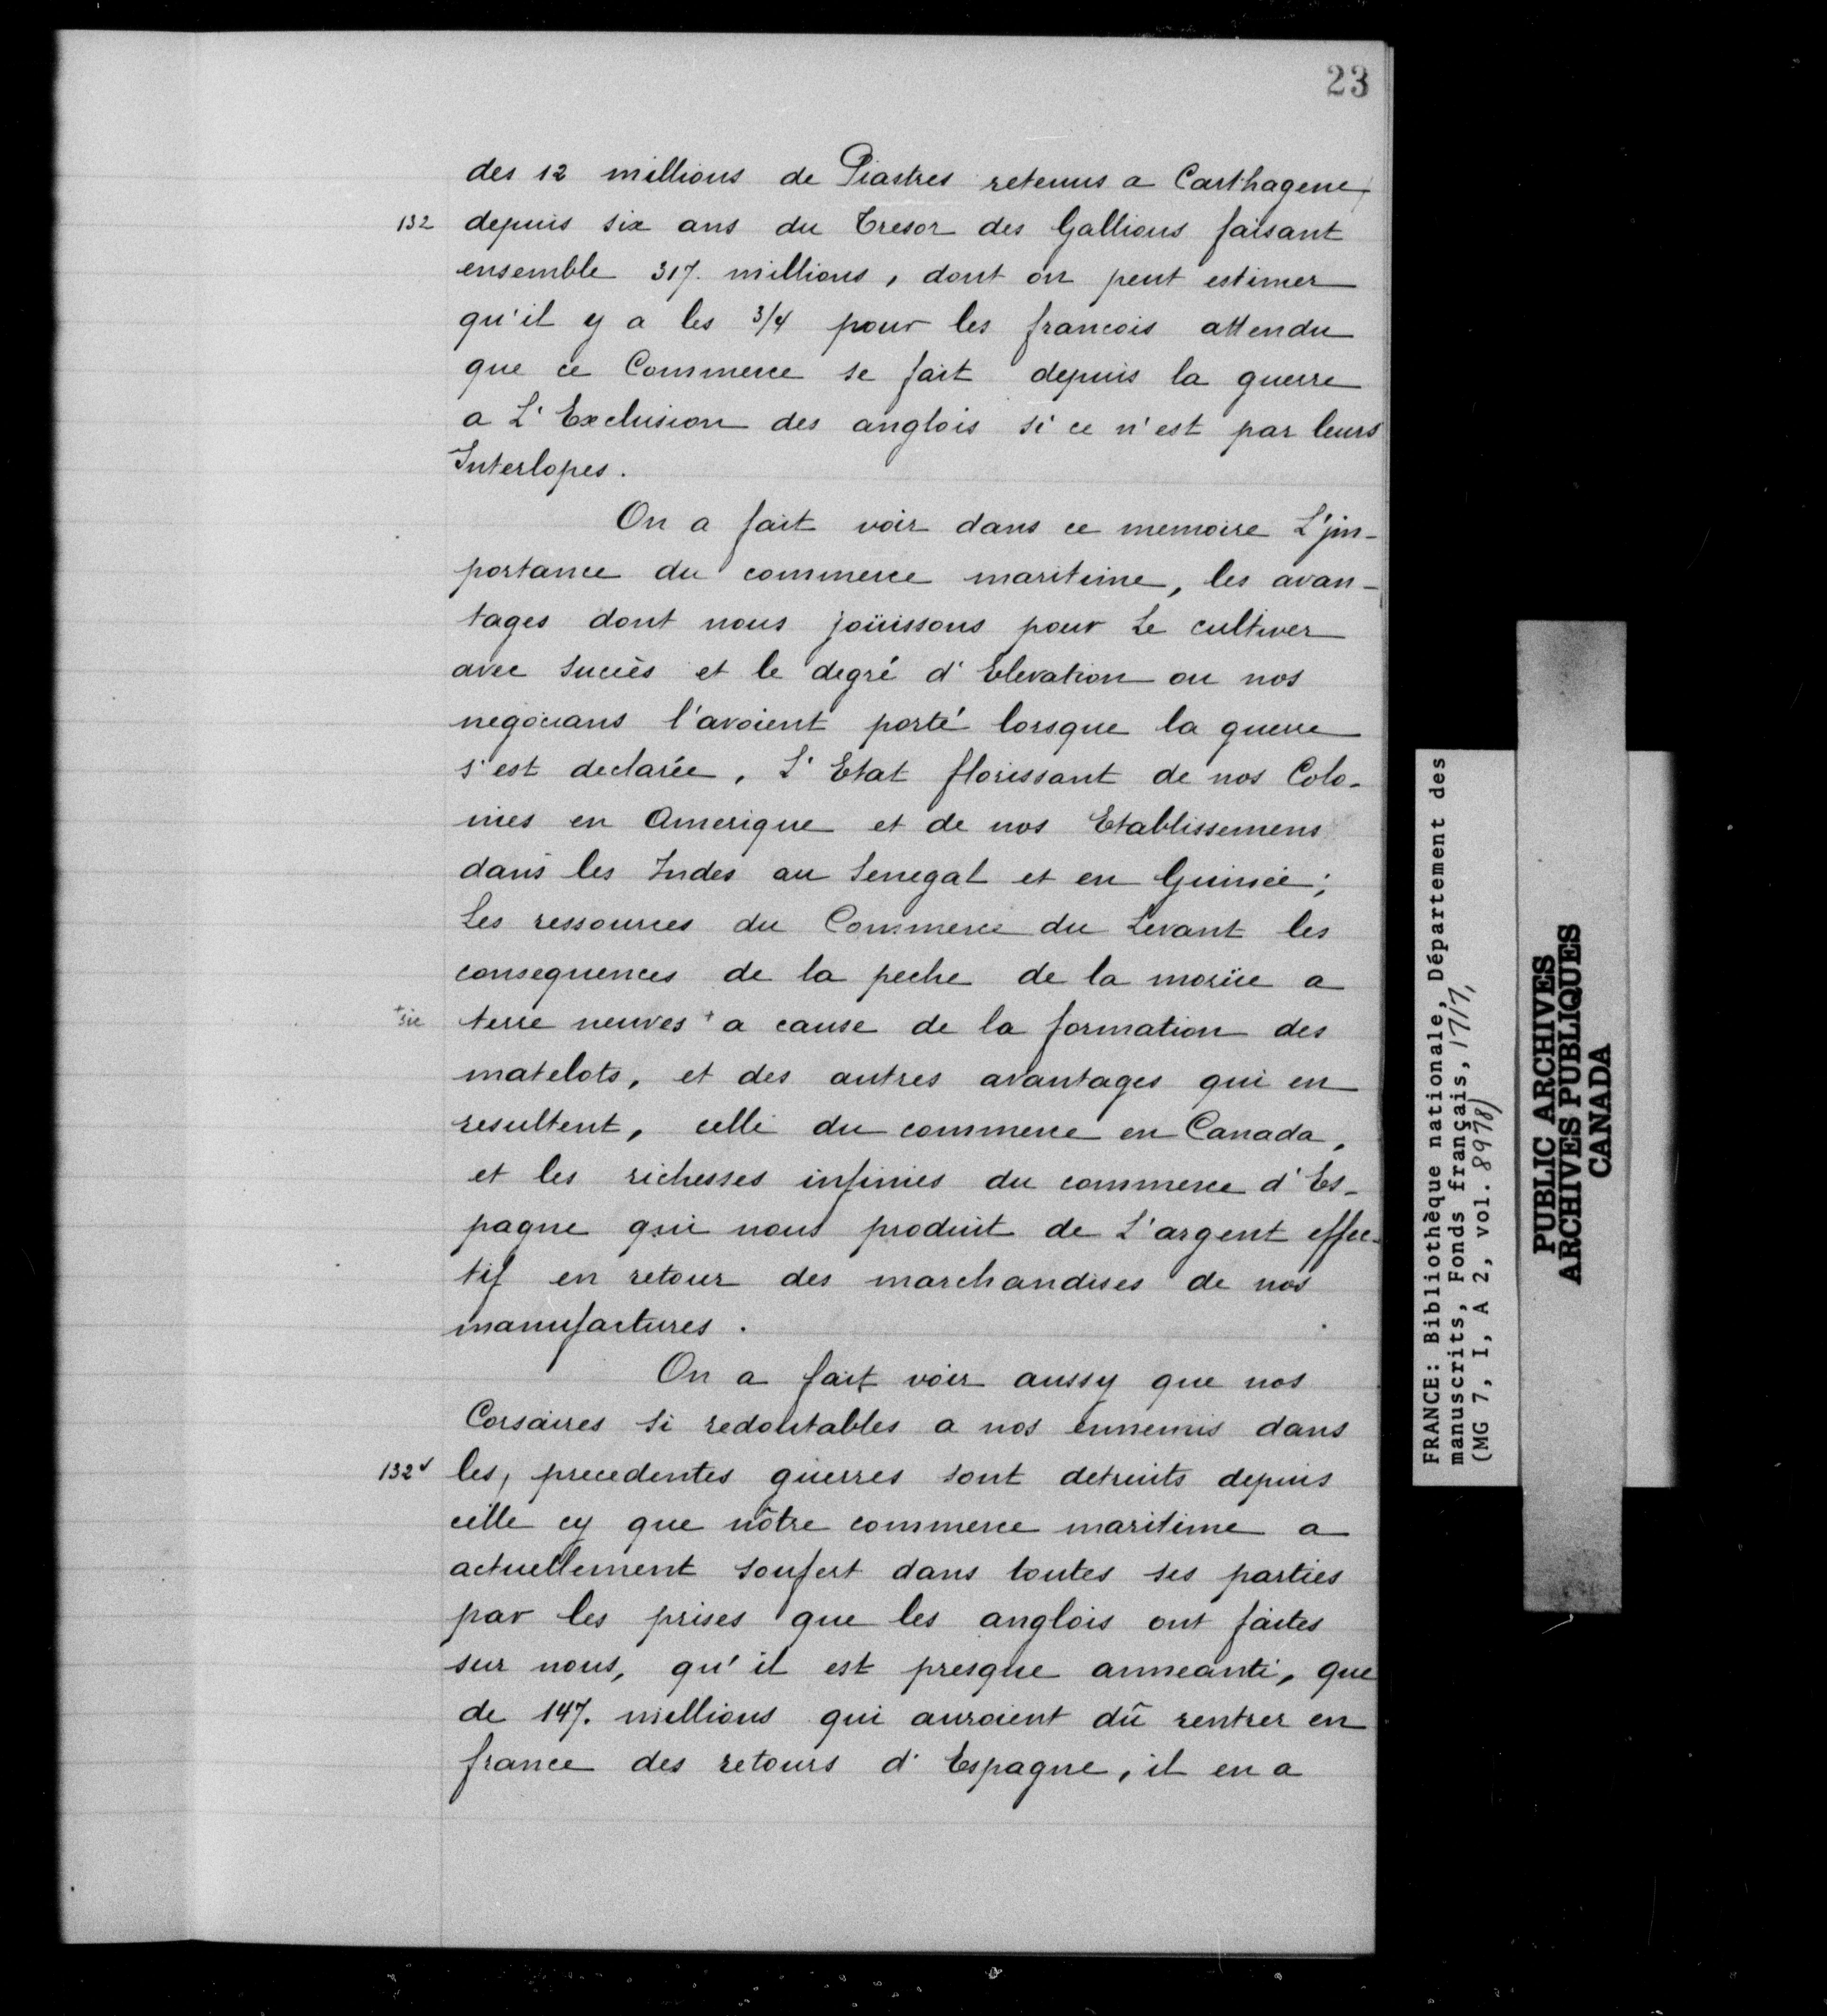 23
des 12 millions de Piastres retenus a Carthagene,
132 depuis six ans du Tresor des Gallions faisant
ensemble 317. millions, dont on peut estimer
qu'il y a les 3/4 pour les francois attendu
que ce Commerce se fait depuis la guerre
a L'Exclusion des anglois si ce n'est par leurs
Interlopes.
On a fait voir dans ce memoire L'jm-
portance du commerce maritime, les avan-
tages dont nous joüissons pour Le cultiver
avec succès et le degré d'Elevation ou nos
negocians l'avoient porté lorsque la guerre
s'est declarée, L'Etat florissant de nos Colo-
nies en Amerique et de nos Etablissemens
dans les Indes au Senegal et en Guinée;
Les ressources du Commerce du Levant les
consequences de la peche de la morüe a
+sic terre neuves + a cause de la formation des
matelots, et des autres avantages qui en
resultent, celle du commerce en Canada,
et les richesses infinies du commerce d'Es-
pagne qui nous produit de L'argent effec-
tif en retour des marchandises de nos
manufactures.
On a fait voir aussy que nos
Corsaires si redoutables a nos ennemis dans
132v les, precedentes guerres sont detruits depuis
celle cy que nôtre commerce maritime a
actuellement soufert dans toutes ses parties
par les prises que les anglois ont faites
sur nous, qu'il est presque anneanti, que
de 147. millions qui auroient dû rentrer en
france des retours d'Espagne, il en a
FRANCE: Bibliothèque nationale, Département des
manuscrits, Fonds français, 1717,
(MG 7, I, A 2, vol. 8978)
PUBLIC ARCHIVES
ARCHIVES PUBLIQUES
CANADA